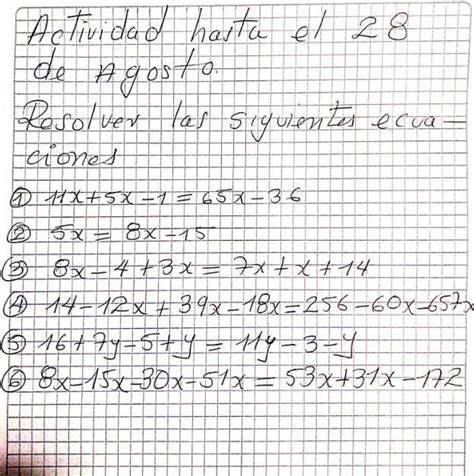 Actividad hasta el 28
de Agosto.
Resolver las siguientes ecua-
ciones
① 11x+5x-1=65x-36
② 5x=8x-15
③ 8x-4+3x=7x+x+14
④ 14-12x+39x-18x=256-60x-657x
⑤ 16+7y-5+y=11y-3-y
⑥ 8x-15x-30x-51x=53x+31x-172